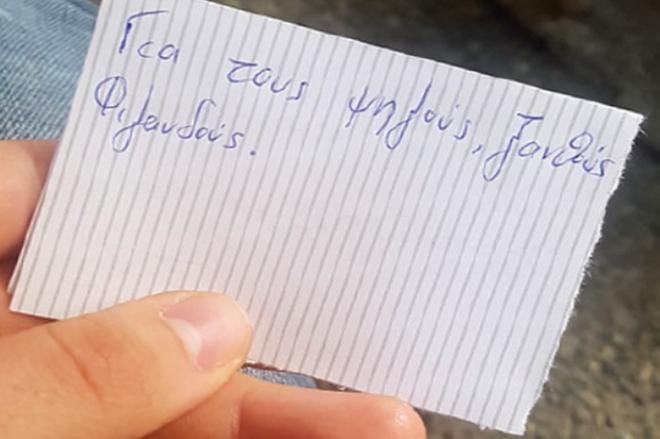 Για τους ψηλούς, ξανθούς
Φιλανδούς.